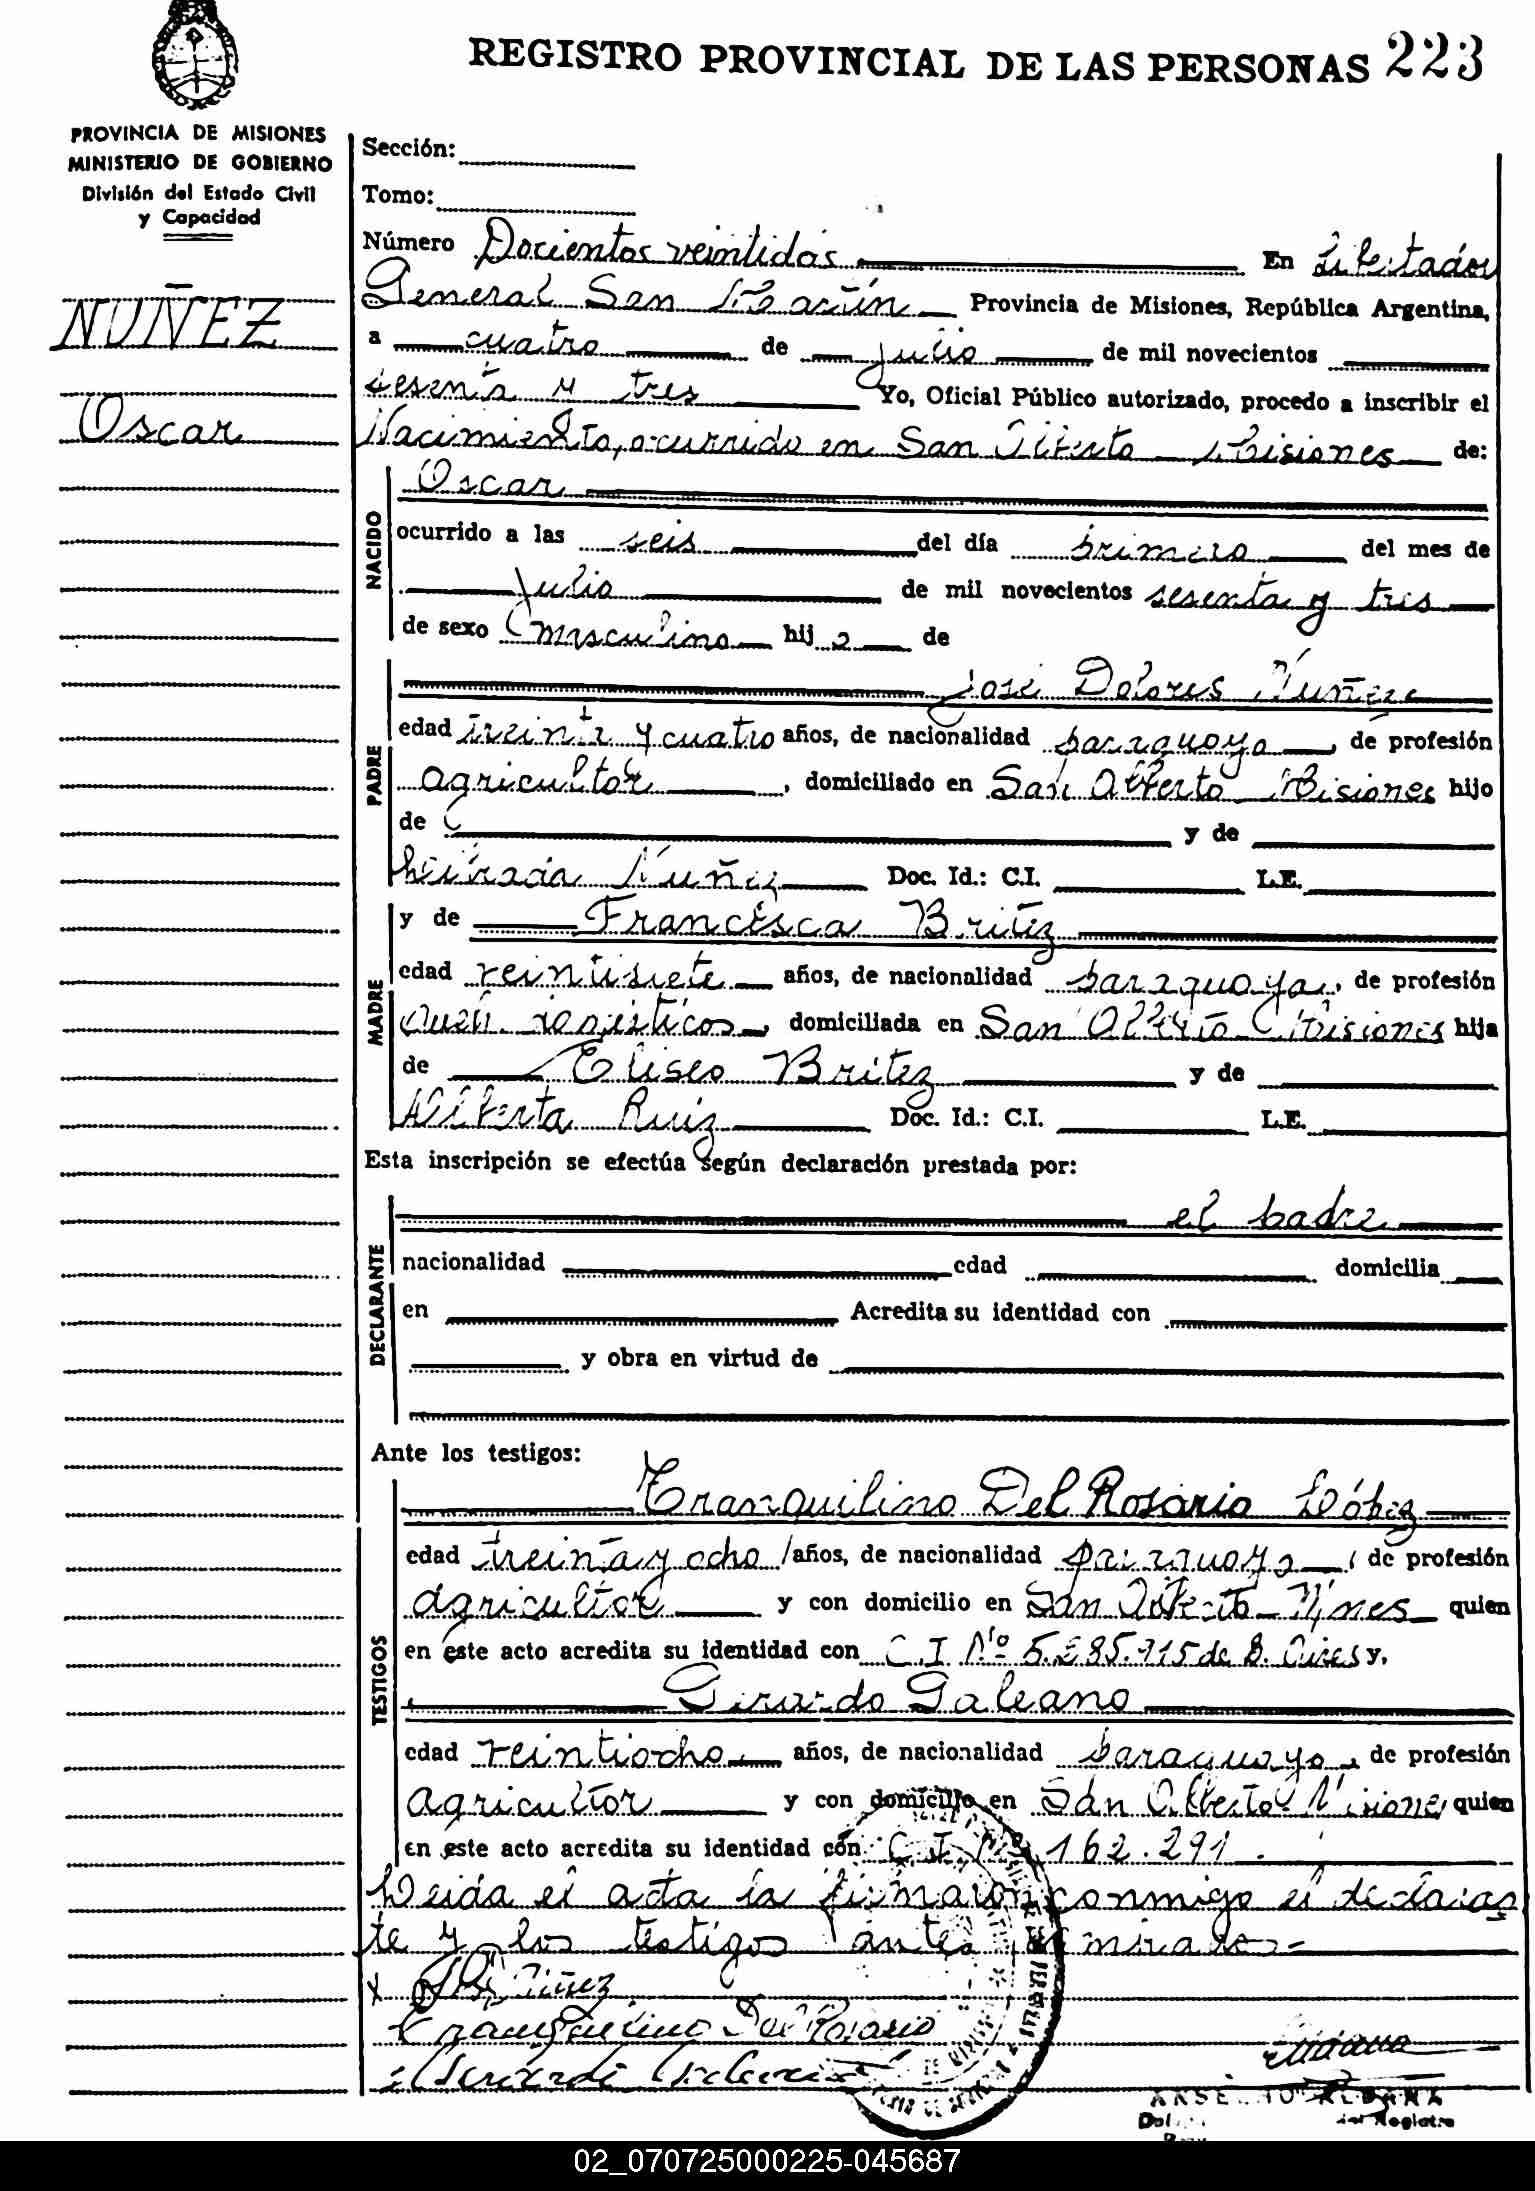 REGISTRO PROVINCIAL DE LAS PERSONAS 223
PROVINCIA DE MISIONES
MINISTERIO DE GOBIERNO
División del Estado Civil
y Capacidad
Sección:
Tomo:
Número Docientos veintidós En Libertador
General San Martín Provincia de Misiones, República Argentina,
NUÑEZ
a cuatro de julio de mil novecientos
sesenta y tres Yo, Oficial Público autorizado, procedo a inscribir el
Oscar
Nacimiento, ocurrido en San Alberto Misiones de:
NACIDO
Oscar
ocurrido a las seis del día primero del mes de
Julio de mil novecientos sesenta y tres
de sexo masculino hijo de
PADRE
José Dolores Nuñez
edad treinta y cuatro años, de nacionalidad paraguayo, de profesión
agricultor, domiciliado en San Alberto Misiones hijo
de y de
Nuñez Doc. Id.: C.I. L.E.
MADRE
y de Francisca Britez
edad veintisiete años, de nacionalidad paraguaya, de profesión
domésticos, domiciliada en San Alberto Misiones hija
de Eliseo Britez y de
Alberta Ruiz Doc. Id.: C.I. L.E.
Esta inscripción se efectúa según declaración prestada por:
DECLARANTE
el padre
nacionalidad edad domicilia
en Acredita su identidad con
y obra en virtud de
Ante los testigos:
TESTIGOS
Tranquilino Del Rosario López
edad treinta y ocho años, de nacionalidad paraguayo, de profesión
agricultor y con domicilio en San Alberto Mnes quien
en este acto acredita su identidad con C.I. Nº de B. Aires y,
Gerardo Galeano
edad veintiocho años, de nacionalidad paraguayo, de profesión
agricultor y con domicilio en San Alberto Misiones quien
en este acto acredita su identidad con C.I. Nº 162.291.
Leida el acta la firmaron conmigo el declaran
te y los testigos antes
Nuñez
Tranquilino Del Rosario
Gerardo Galeano
del Registro
02_070725000225-045687